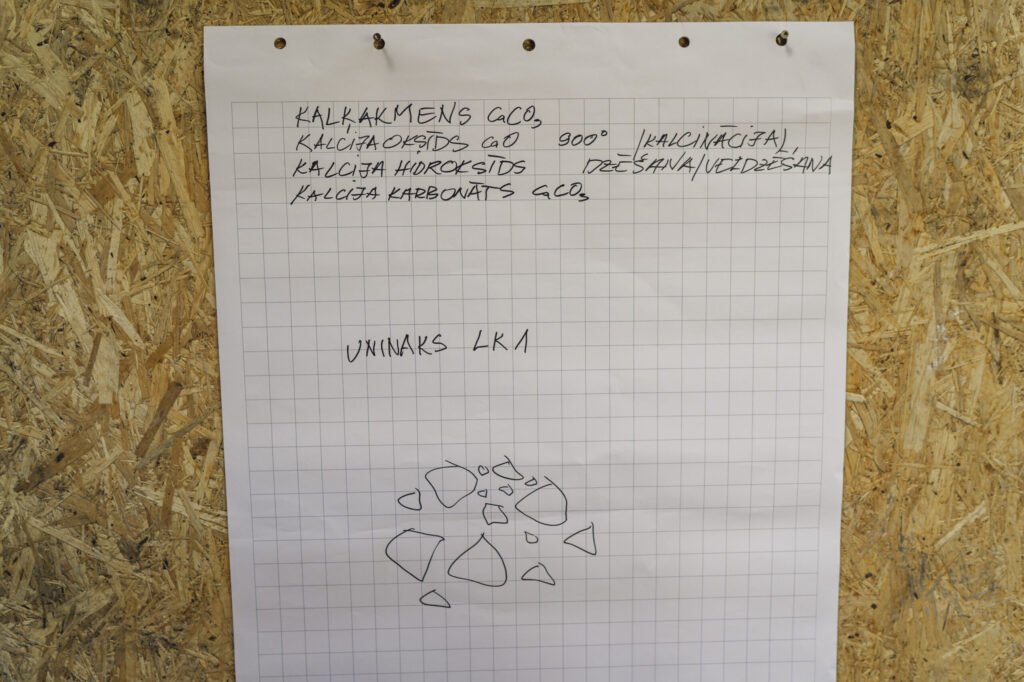 KAĻĶAKMENS CaCO₃
KALCIJA OKSĪDS CaO 900° /KALCINĀCIJA/,
KALCIJA HIDROKSĪDS DZĒŠANA/VELDZĒŠANA
KALCIJA KARBONĀTS CaCO₃
UNINAKS LK1